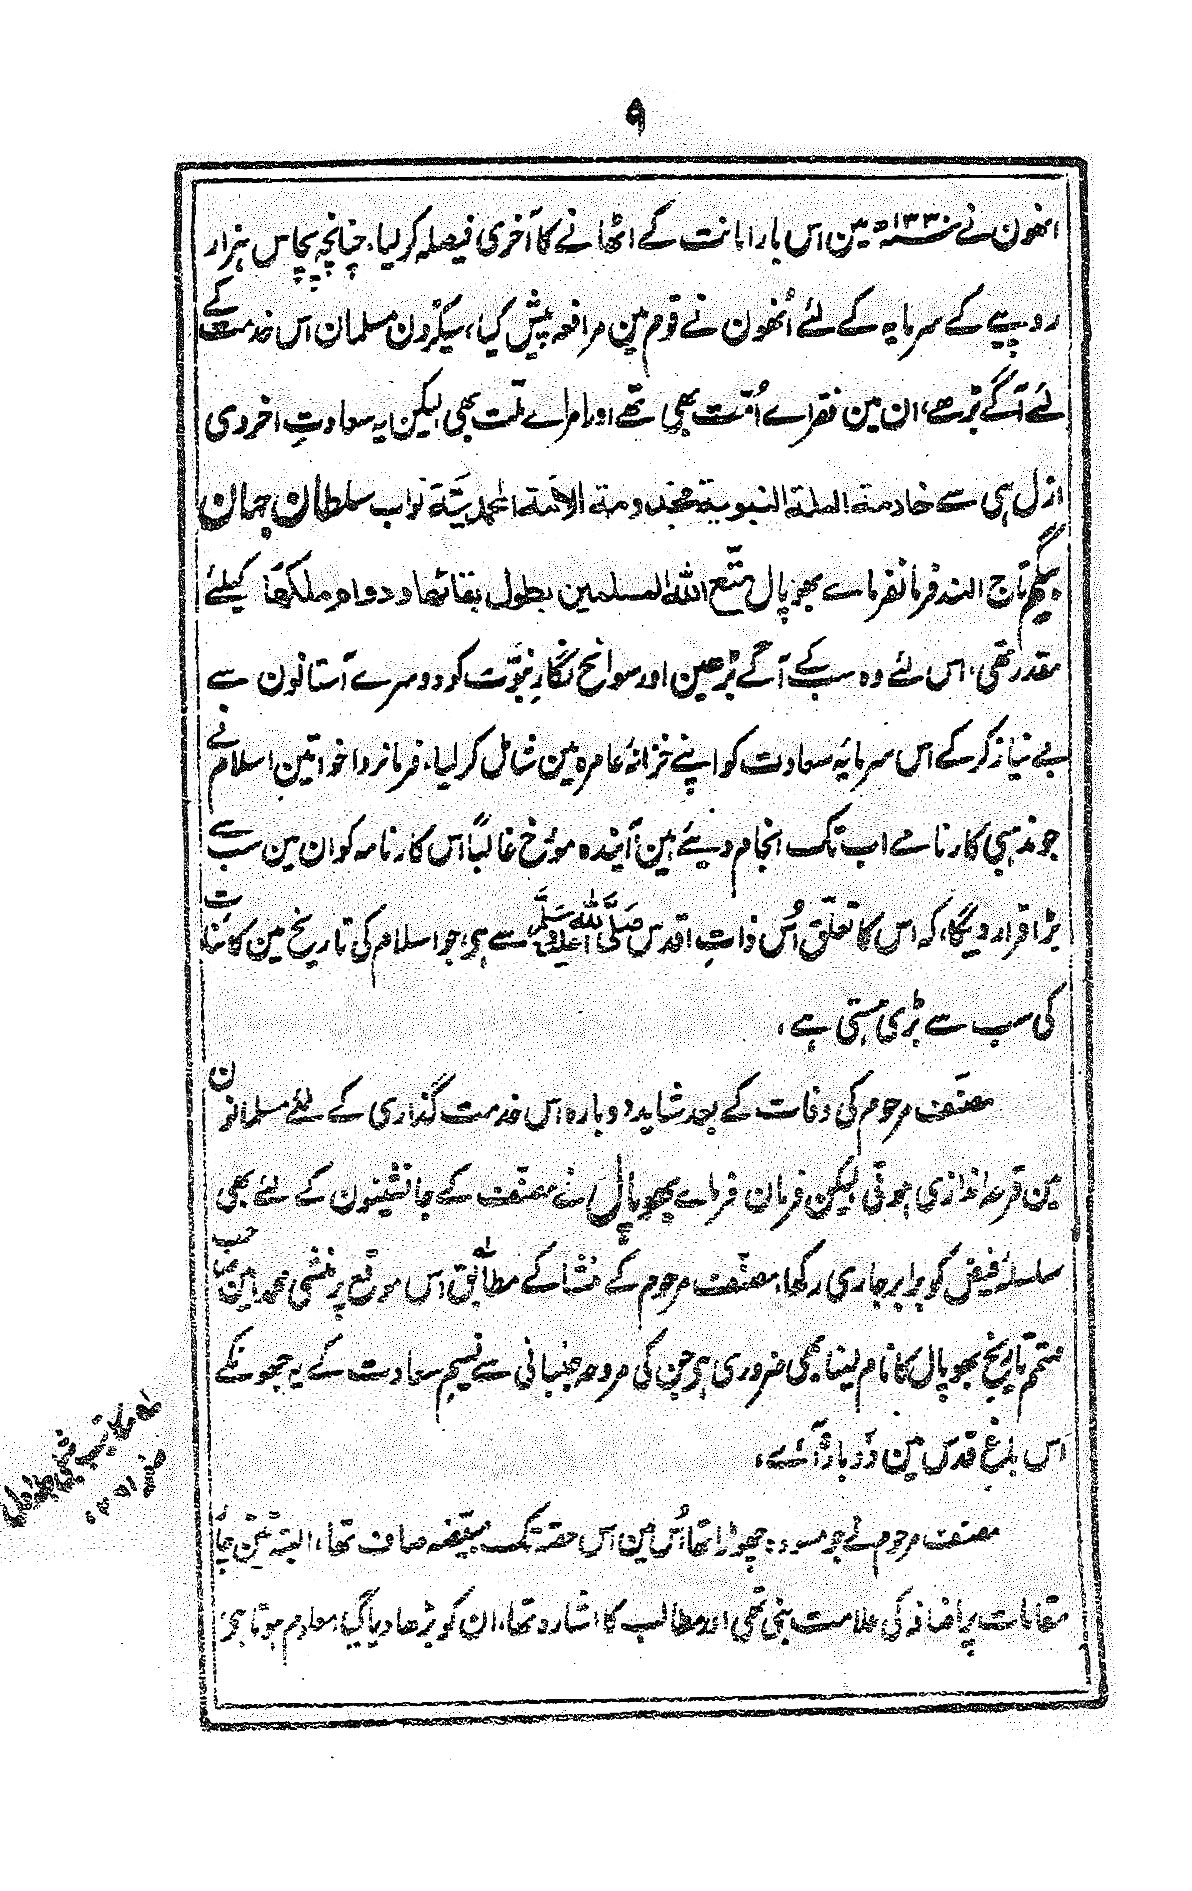 ۹
انھون نے ۱۳۳۰ھ مین اس بار امانت کے اٹھانے کا آخری فیصلہ کر لیا، چنانچہ پچاس ہزار
روپیے کے سرمایہ کے لئے اُنھون نے قوم مین مرافعہ پیش کیا، سیکڑون مسلمان اس خدمت کے
لئے آگے بڑھے، ان مین فقراے اُمّت بھی تھے اور امراے ملّت بھی، لیکن یہ سعادتِ اخروی
ازل ہی سے خادمة الملة النبویة مخدومة الامة المحمدیّة نواب سلطان جہان
بیگم تاج الہند فرمانفرماے بھوپال متّع اللہ المسلمین بطول بقائھا ودوام ملکھا کیلئے
مقدر تھی، اس لئے وہ سب کے آگے بڑھین اور سوانح نگارِ نبوّت کو دوسرے آستانون سے
بے نیاز کر کے اس سرمایۂ سعادت کو اپنے خزانۂ عامرہ مین شامل کر لیا، فرمانروا خواتین اسلام نے
جو مذہبی کارنامے اب تک انجام دیئے ہین آیندہ مورّخ غالباً اس کارنامہ کو ان مین سب سے
بڑا قرار دیگا، کہ اس کا تعلّق اُس ذاتِ اقدس صَلَّی اللہ عَلَیْہِ وَسَلَّم سے ہی، جو اسلام کی تاریخ مین کائنات
کی سب سے بڑی ہستی ہے،
مصنّف مرحوم کی وفات کے بعد شاید دوبارہ اس خدمت گذاری کے لئے مسلمانون
مین قرعہ اندازی ہوتی، لیکن فرمان فرماے بھوپال نے مصنّف کے جانشینون کے لئے بھی
سلسلۂ فیض کو برابر جاری رکھا، مصنّف مرحوم کے منشا کے مطابق اس موقع پر منشی محمد امین صاحب
مہتمم تاریخ بھوپال کا نام لینا بھی ضروری ہی جن کی مروحہ جنبانی سے نسیمِ سعادت کے یہ جھونکے
اس باغ قدس مین دوبارہ آئے،
مصنف مرحوم نے جو مسودہ چھوڑا تھا اُس مین اس حصّہ تک مبیّضہ صاف تھا، البتہ بعض جا
مقامات پر اضافہ کی علامت بنی تھی اور مطالب کا اشارہ تھا، ان کو بڑھا دیا گیا، معلوم ہوتا ہی
لہ مکاتیب شبلی جلد اول
صفحہ